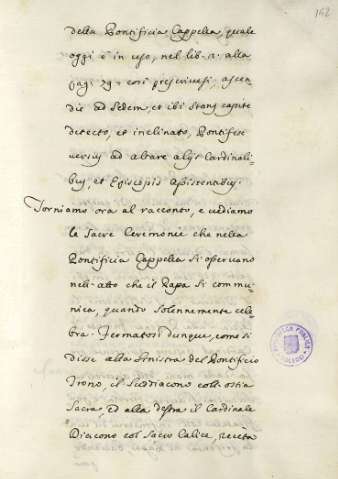 162
della Pontificia Cappella, quale
oggi è in uso, nel lib. 2. alla
pag. 29. così prescrivesi, ascen
dit ad Sedem, et ibi stans capite
detecto, et inclinato, Pontifex
versus ad altare alijs Cardinali-
bus, et Episcopis assistentibus.
Torniamo ora al racconto, e vediamo
le Sacre Ceremonie che nella
Pontificia Cappella si operano
nell'atto che il Papa si commu-
nica, quando solennemente cele-
bra. Fermatosi dunque, come si
disse alla sinistra del Pontificio
Trono, il Suddiacono coll'ostia
Sacra, ed alla destra il Cardinale
Diacono col Sacro Calice, recita